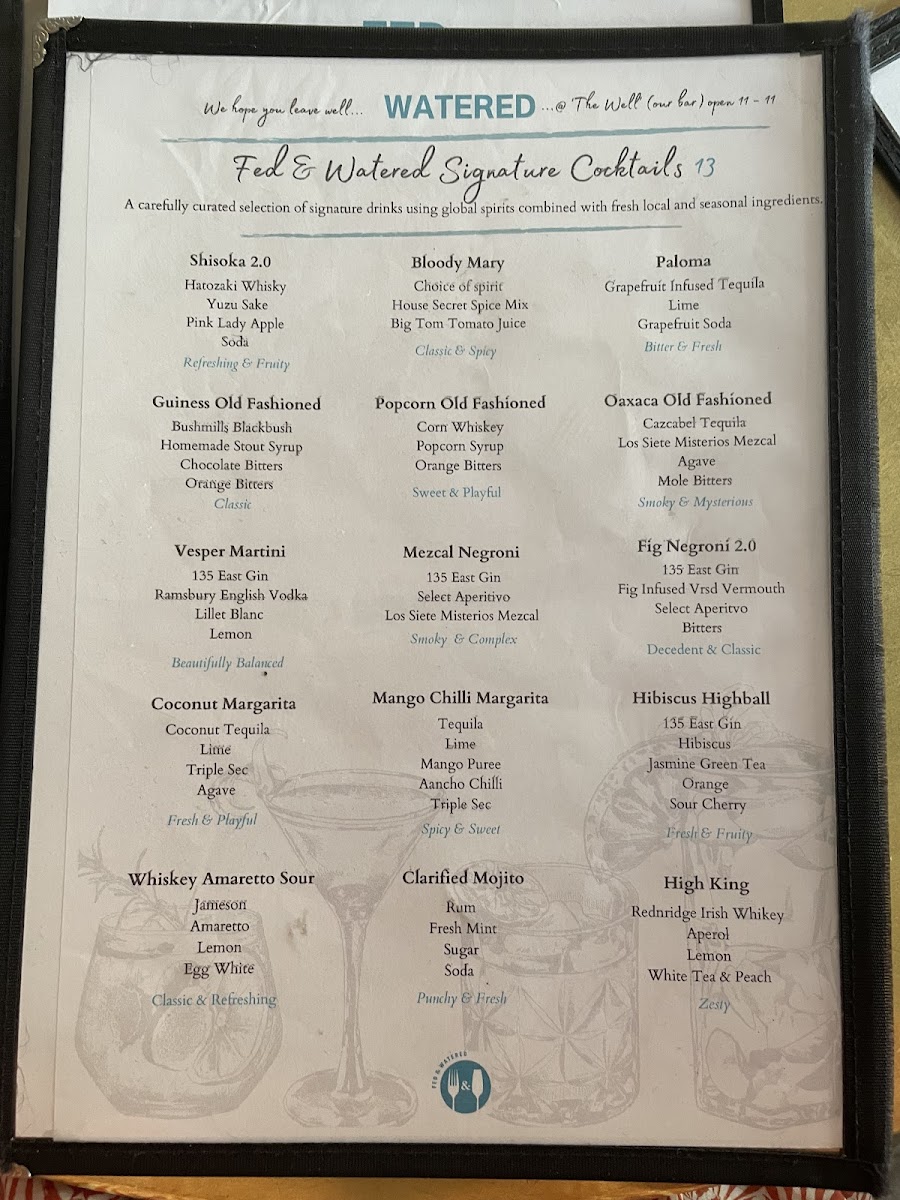 We hope you leave well... WATERED ...@ The Well (our bar) open 11 - 11
Fed & Watered Signature Cocktails 13
A carefully curated selection of signature drinks using global spirits combined with fresh local and seasonal ingredients.
Shisoka 2.0
Hatozaki Whisky
Yuzu Sake
Pink Lady Apple
Soda
Refreshing & Fruity
Bloody Mary
Choice of spirit
House Secret Spice Mix
Big Tom Tomato Juice
Classic & Spicy
Paloma
Grapefruit Infused Tequila
Lime
Grapefruit Soda
Bitter & Fresh
Guiness Old Fashioned
Bushmills Blackbush
Homemade Stout Syrup
Chocolate Bitters
Orange Bitters
Classic
Popcorn Old Fashioned
Corn Whiskey
Popcorn Syrup
Orange Bitters
Sweet & Playful
Oaxaca Old Fashioned
Cazcabel Tequila
Los Siete Misterios Mezcal
Agave
Mole Bitters
Smoky & Mysterious
Vesper Martini
135 East Gin
Ramsbury English Vodka
Lillet Blanc
Lemon
Beautifully Balanced
Mezcal Negroni
135 East Gin
Select Aperitivo
Los Siete Misterios Mezcal
Smoky & Complex
Fig Negroni 2.0
135 East Gin
Fig Infused Vrsd Vermouth
Select Aperitvo
Bitters
Decedent & Classic
Coconut Margarita
Coconut Tequila
Lime
Triple Sec
Agave
Fresh & Playful
Mango Chilli Margarita
Tequila
Lime
Mango Puree
Aancho Chilli
Triple Sec
Spicy & Sweet
Hibiscus Highball
135 East Gin
Hibiscus
Jasmine Green Tea
Orange
Sour Cherry
Fresh & Fruity
Whiskey Amaretto Sour
Jameson
Amaretto
Lemon
Egg White
Classic & Refreshing
Clarified Mojito
Rum
Fresh Mint
Sugar
Soda
Punchy & Fresh
High King
Rednridge Irish Whikey
Aperol
Lemon
White Tea & Peach
Zesty
FED & WATERED
&